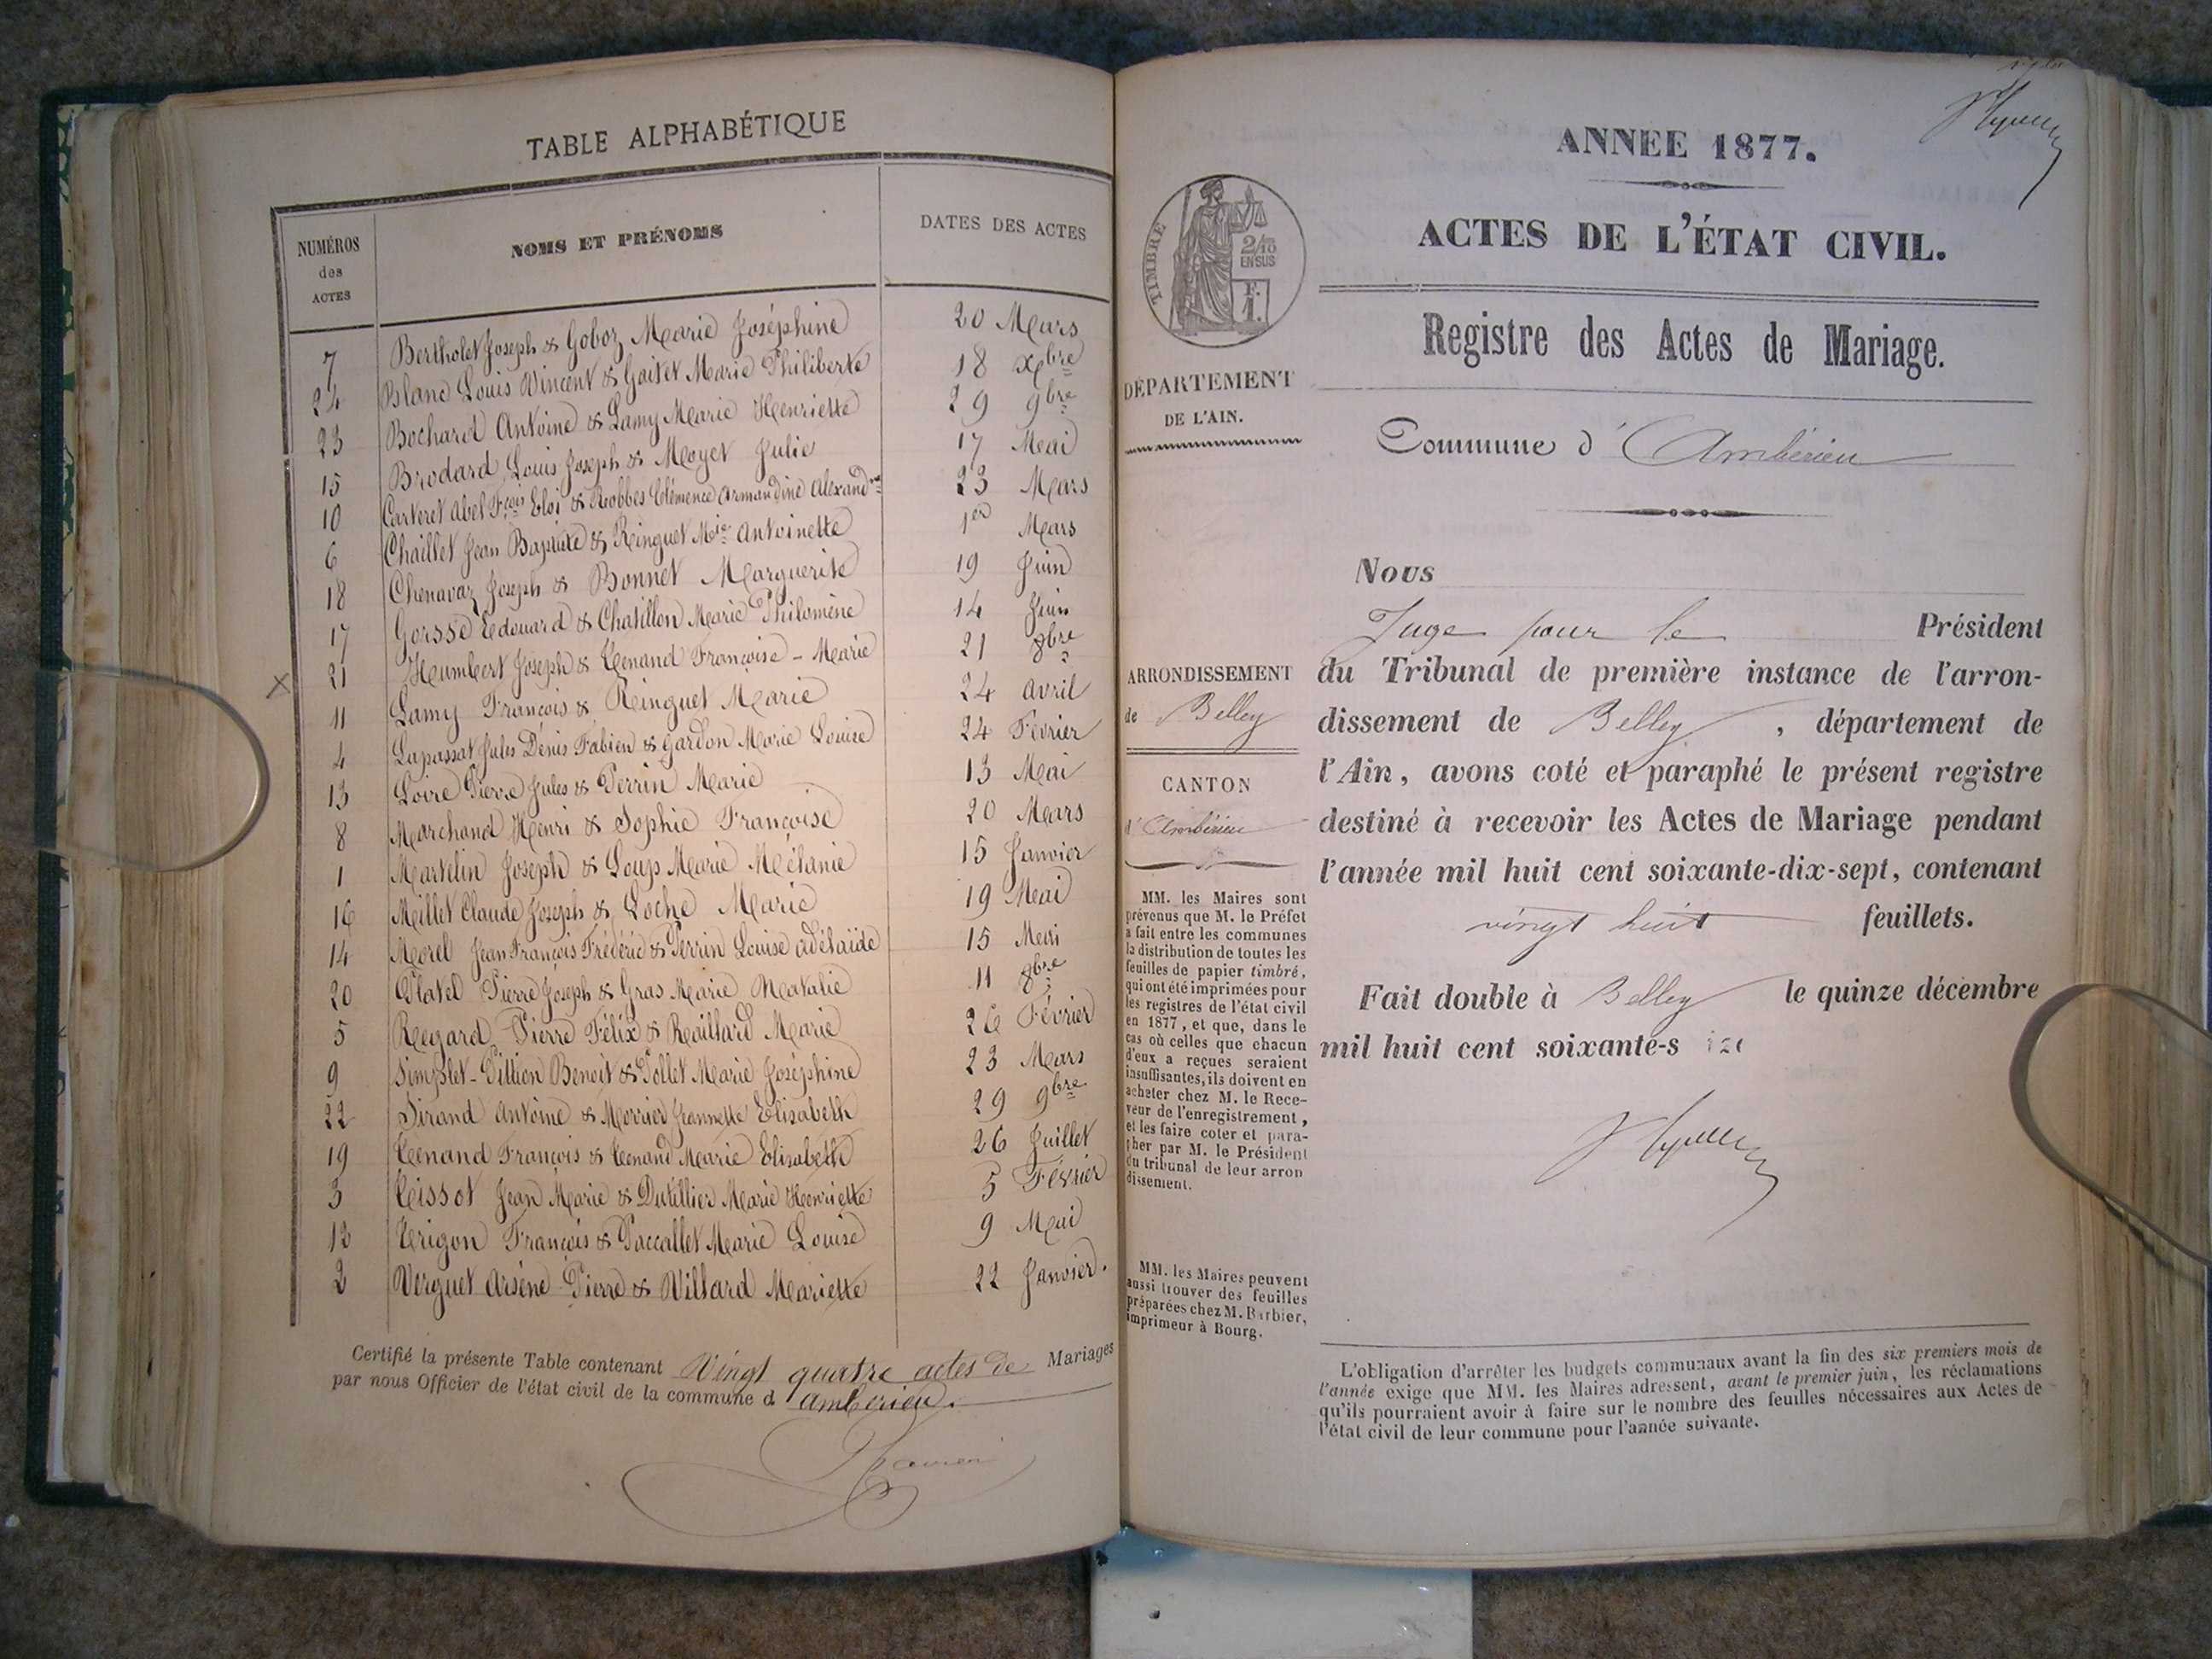 TABLE ALPHABÉTIQUE
NUMÉROS des ACTES
NOMS ET PRÉNOMS
DATES DES ACTES
7 Bertholet Joseph & Goboz Marie Joséphine 20 Mars
24 Blanc Louis Vincent & Gaitet Marie Philiberte 18 Xbre
23 Bochard Antoine & Lamy Marie Henriette 29 9bre
15 Brodard Louis Joseph & Moyet Julie 17 Mai
10 Carteret Abel Fçois Eloi & Robbes Clémence Armandine Alexandne 23 Mars
6 Chaillet Jean Baptiste & Ringuet Mie Antoinette 1er Mars
18 Chenavaz Joseph & Bonnet Marguerite 19 Juin
17 Gorsse Edouard & Chatillon Marie Philomène 14 Juin
21 Humbert Joseph & Tenand Françoise - Marie 21 8bre
X 11 Lamy François & Ringuet Marie 24 Avril
4 Lapassat Jules Dénis Fabien & Gardon Marie Louise 24 Février
13 Loire Pierre Jules & Perrin Marie 13 Mai
8 Marchand Henri & Sophie Françoise 20 Mars
1 Martelin Joseph & Loup Marie Mélanie 15 Janvier
16 Millet Claude Joseph & Loche Marie 19 Mai
14 Morel Jean François Frédéric & Perrin Louise Adélaïde 15 Mai
20 Platel Pierre Joseph & Gras Marie Natalie 11 8bre
5 Regard Pierre Félix & Raillard Marie 26 Février
9 Simplet-Pittion Benoit & Pollet Marie Joséphine 23 Mars
22 Sirand Antoine & Morrier Jeannette Elisabeth 29 9bre
19 Tenand François & Tenand Marie Elisabeth 26 Juillet
3 Tissot Jean Marie & Dutillier Marie Henriette 5 Février
12 Trigon François & Paccallet Marie Louise 9 Mai
2 Verguet Arsène Pierre & Villard Mariette 22 Janvier.
Certifié la présente Table contenant Vingt quatre actes de Mariages
par nous Officier de l'état civil de la commune d Ambérieu.
ANNEE 1877.
ACTES DE L'ÉTAT CIVIL.
TIMBRE
2/10
EN SUS
F.
1.
Registre des Actes de Mariage.
DÉPARTEMENT
DE L'AIN.
Commune d' Ambérieu
Nous
Juge pour le Président
du Tribunal de première instance de l'arron-
dissement de Belley, département de
l'Ain, avons coté et paraphé le présent registre
destiné à recevoir les Actes de Mariage pendant
l'année mil huit cent soixante-dix-sept, contenant
vingt huit feuillets.
Fait double à Belley le quinze décembre
mil huit cent soixante-s ize
ARRONDISSEMENT
de Belley
CANTON
d'Ambérieu
MM. les Maires sont
prévenus que M. le Préfet
a fait entre les communes
la distribution de toutes les
feuilles de papier timbré,
qui ont été imprimées pour
les registres de l'état civil
en 1877, et que, dans le
cas où celles que chacun
d'eux a reçues seraient
insuffisantes, ils doivent en
acheter chez M. le Rece-
veur de l'enregistrement,
et les faire coter et para-
pher par M. le Président
du tribunal de leur arron
dissement.
MM. les Maires peuvent
aussi trouver des feuilles
préparées chez M. Barbier,
imprimeur à Bourg.
L'obligation d'arrêter les budgets communaux avant la fin des six premiers mois de
l'année exige que MM. les Maires adressent, avant le premier juin, les réclamations
qu'ils pourraient avoir à faire sur le nombre des feuilles nécessaires aux Actes de
l'état civil de leur commune pour l'année suivante.